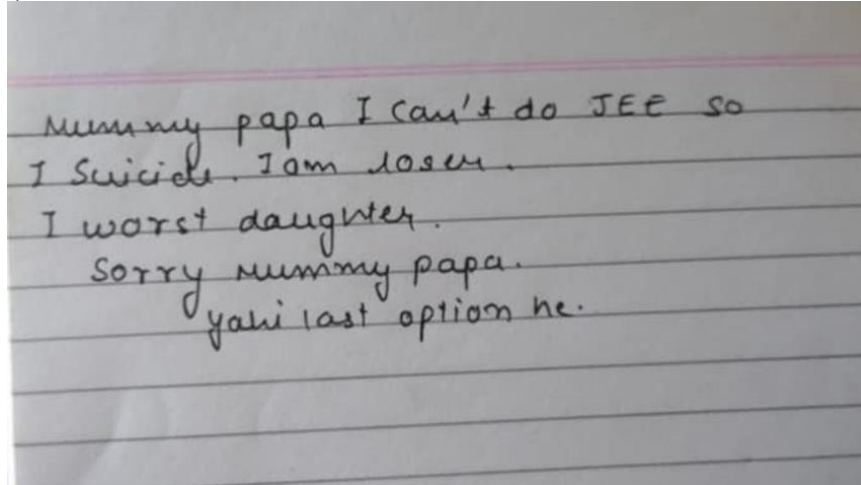 Mummy papa I can't do JEE so
I suicide. I am loser.
I worst daughter.
Sorry Mummy papa.
yahi last option he.